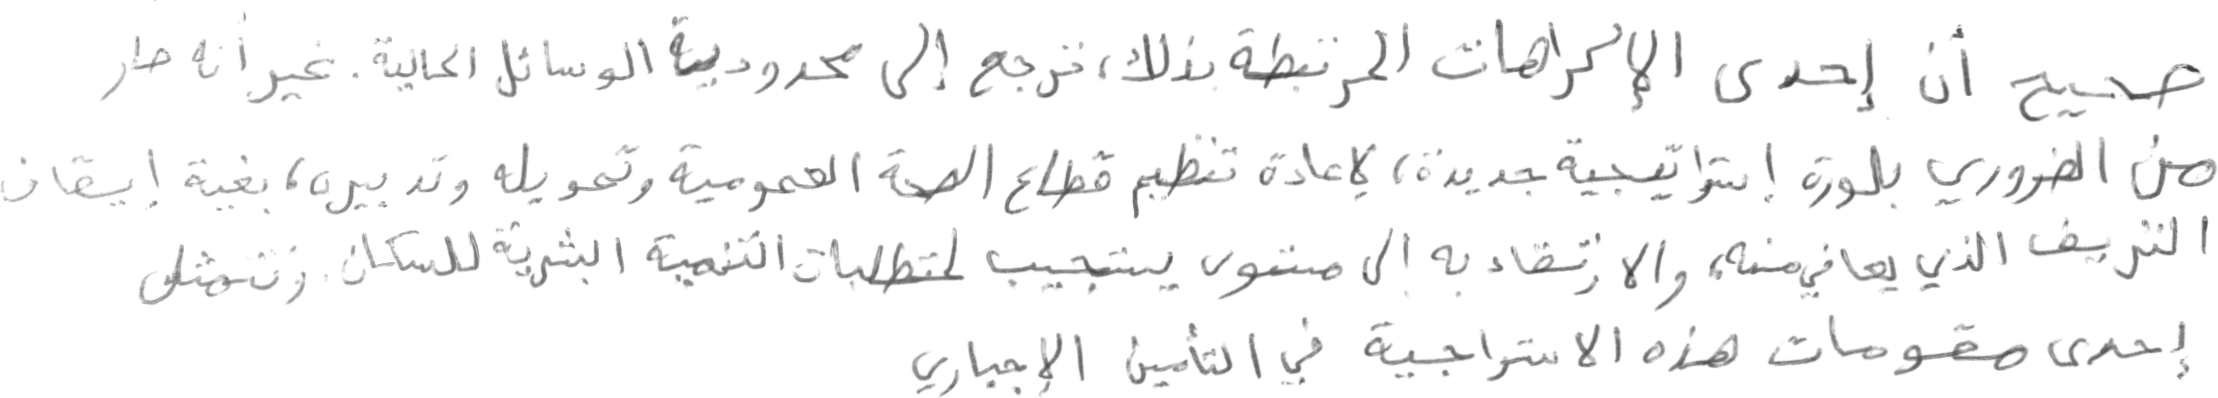 صحيح أن إحدى الإكراهات المرتبطة بذلك، ترجع إلى محدودية الوسائل الحالية. غير أنه صار
من الضروري بلورة إستراتيجية جديدة، لإعادة تنظيم قطاع الصحة العمومية وتمويله وتدبيره، بغية إيقاف
النزيف الذي يعاني منه، والارتقاء به إلى مستوى يستجيب لمتطلبات التنمية البشرية للسكان. وتتمثل
إحدى مقومات هذه الاستراجية في التأمين الإجباري